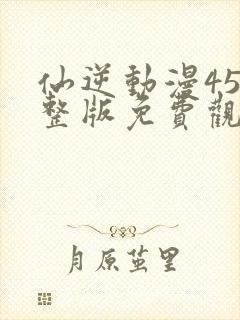 仙逆動漫45
整版免費觀
月原茧里